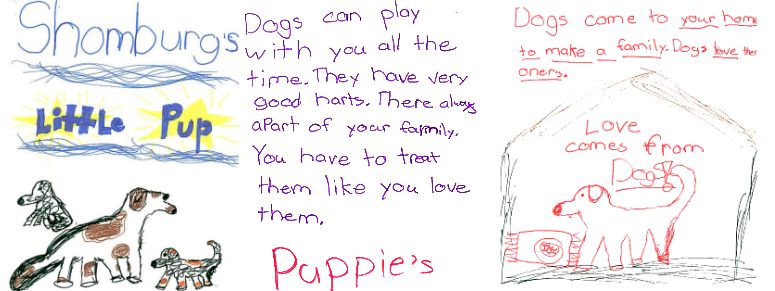 Shomburg's
Little Pup
Dogs can play
with you all the
time. They have very
good harts. There always
apart of your family.
You have to treat
them like you love
them.
Puppie's
Dogs come to your home
to make a family. Dogs love ther
oners.
Love
comes from
Dogs